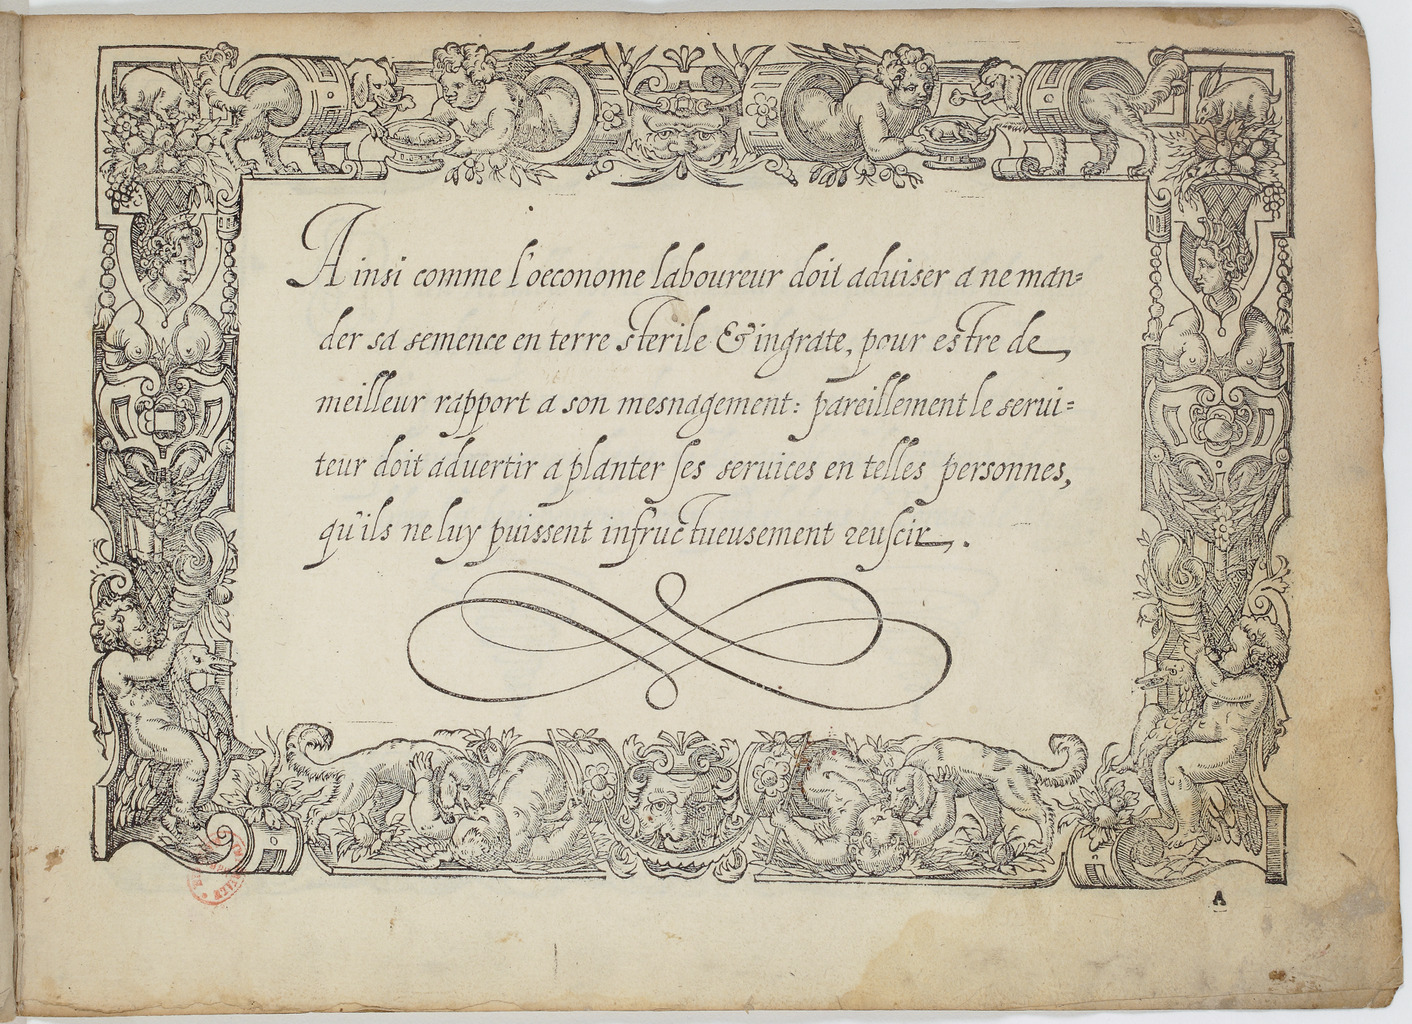 Ainsi comme l'oeconome laboureur doit aduiser a ne man=
der sa semence en terre sterile & ingrate, pour estre de
meilleur rapport a son mesnagement: pareillement le serui=
teur doit aduertir a planter ses seruices en telles personnes,
qu'ils ne luy puissent infructueusement reuscir.
A